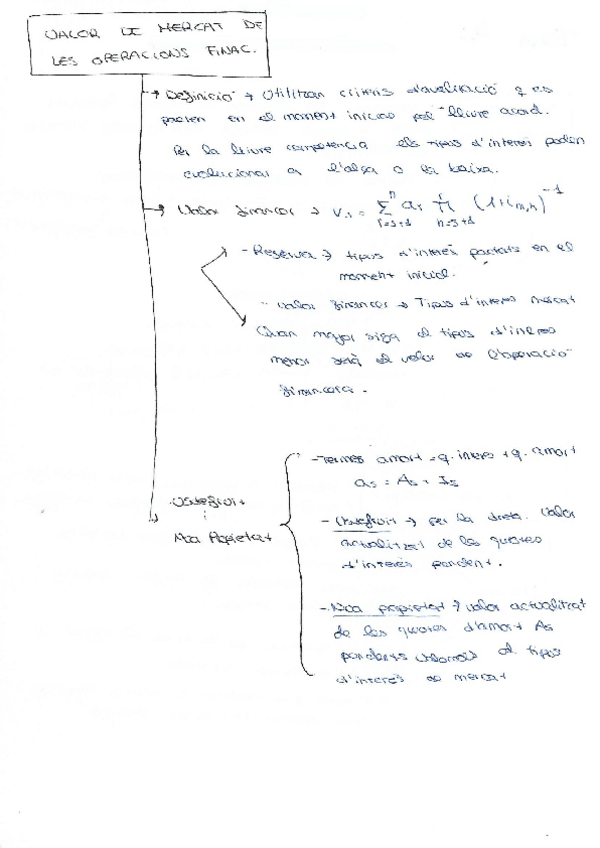 VALOR DE MERCAT DE
LES OPERACIONS FINAC.
→ Definició → Utilitzan criteris d'avaluació q es
pacten en el moment inicial pel lliure acord.
Per la lliure competencia els tipos d'interés poden
evolucionar a l'alça o la baixa.
→ Valor financer → Vs = Σ ar π (1+im,h)⁻¹
- Reserva → tipos d'interés pactats en el
moment inicial.
- Valor financer → Tipos d'interes mercat
Quan major siga el tipos d'interes
menor serà el valor de l'operació
financera.
Usdefruit
Nua Propietat
- Termes amort = q. interes + q. amort
as = As + Is
- Usdefruit → per la dreta. Valor
actualitzat de les quotes
d'interés pendent.
- Nua propietat → valor actualitzat
de les quotes d'amort As
pendents el tipos
d'interés de mercat